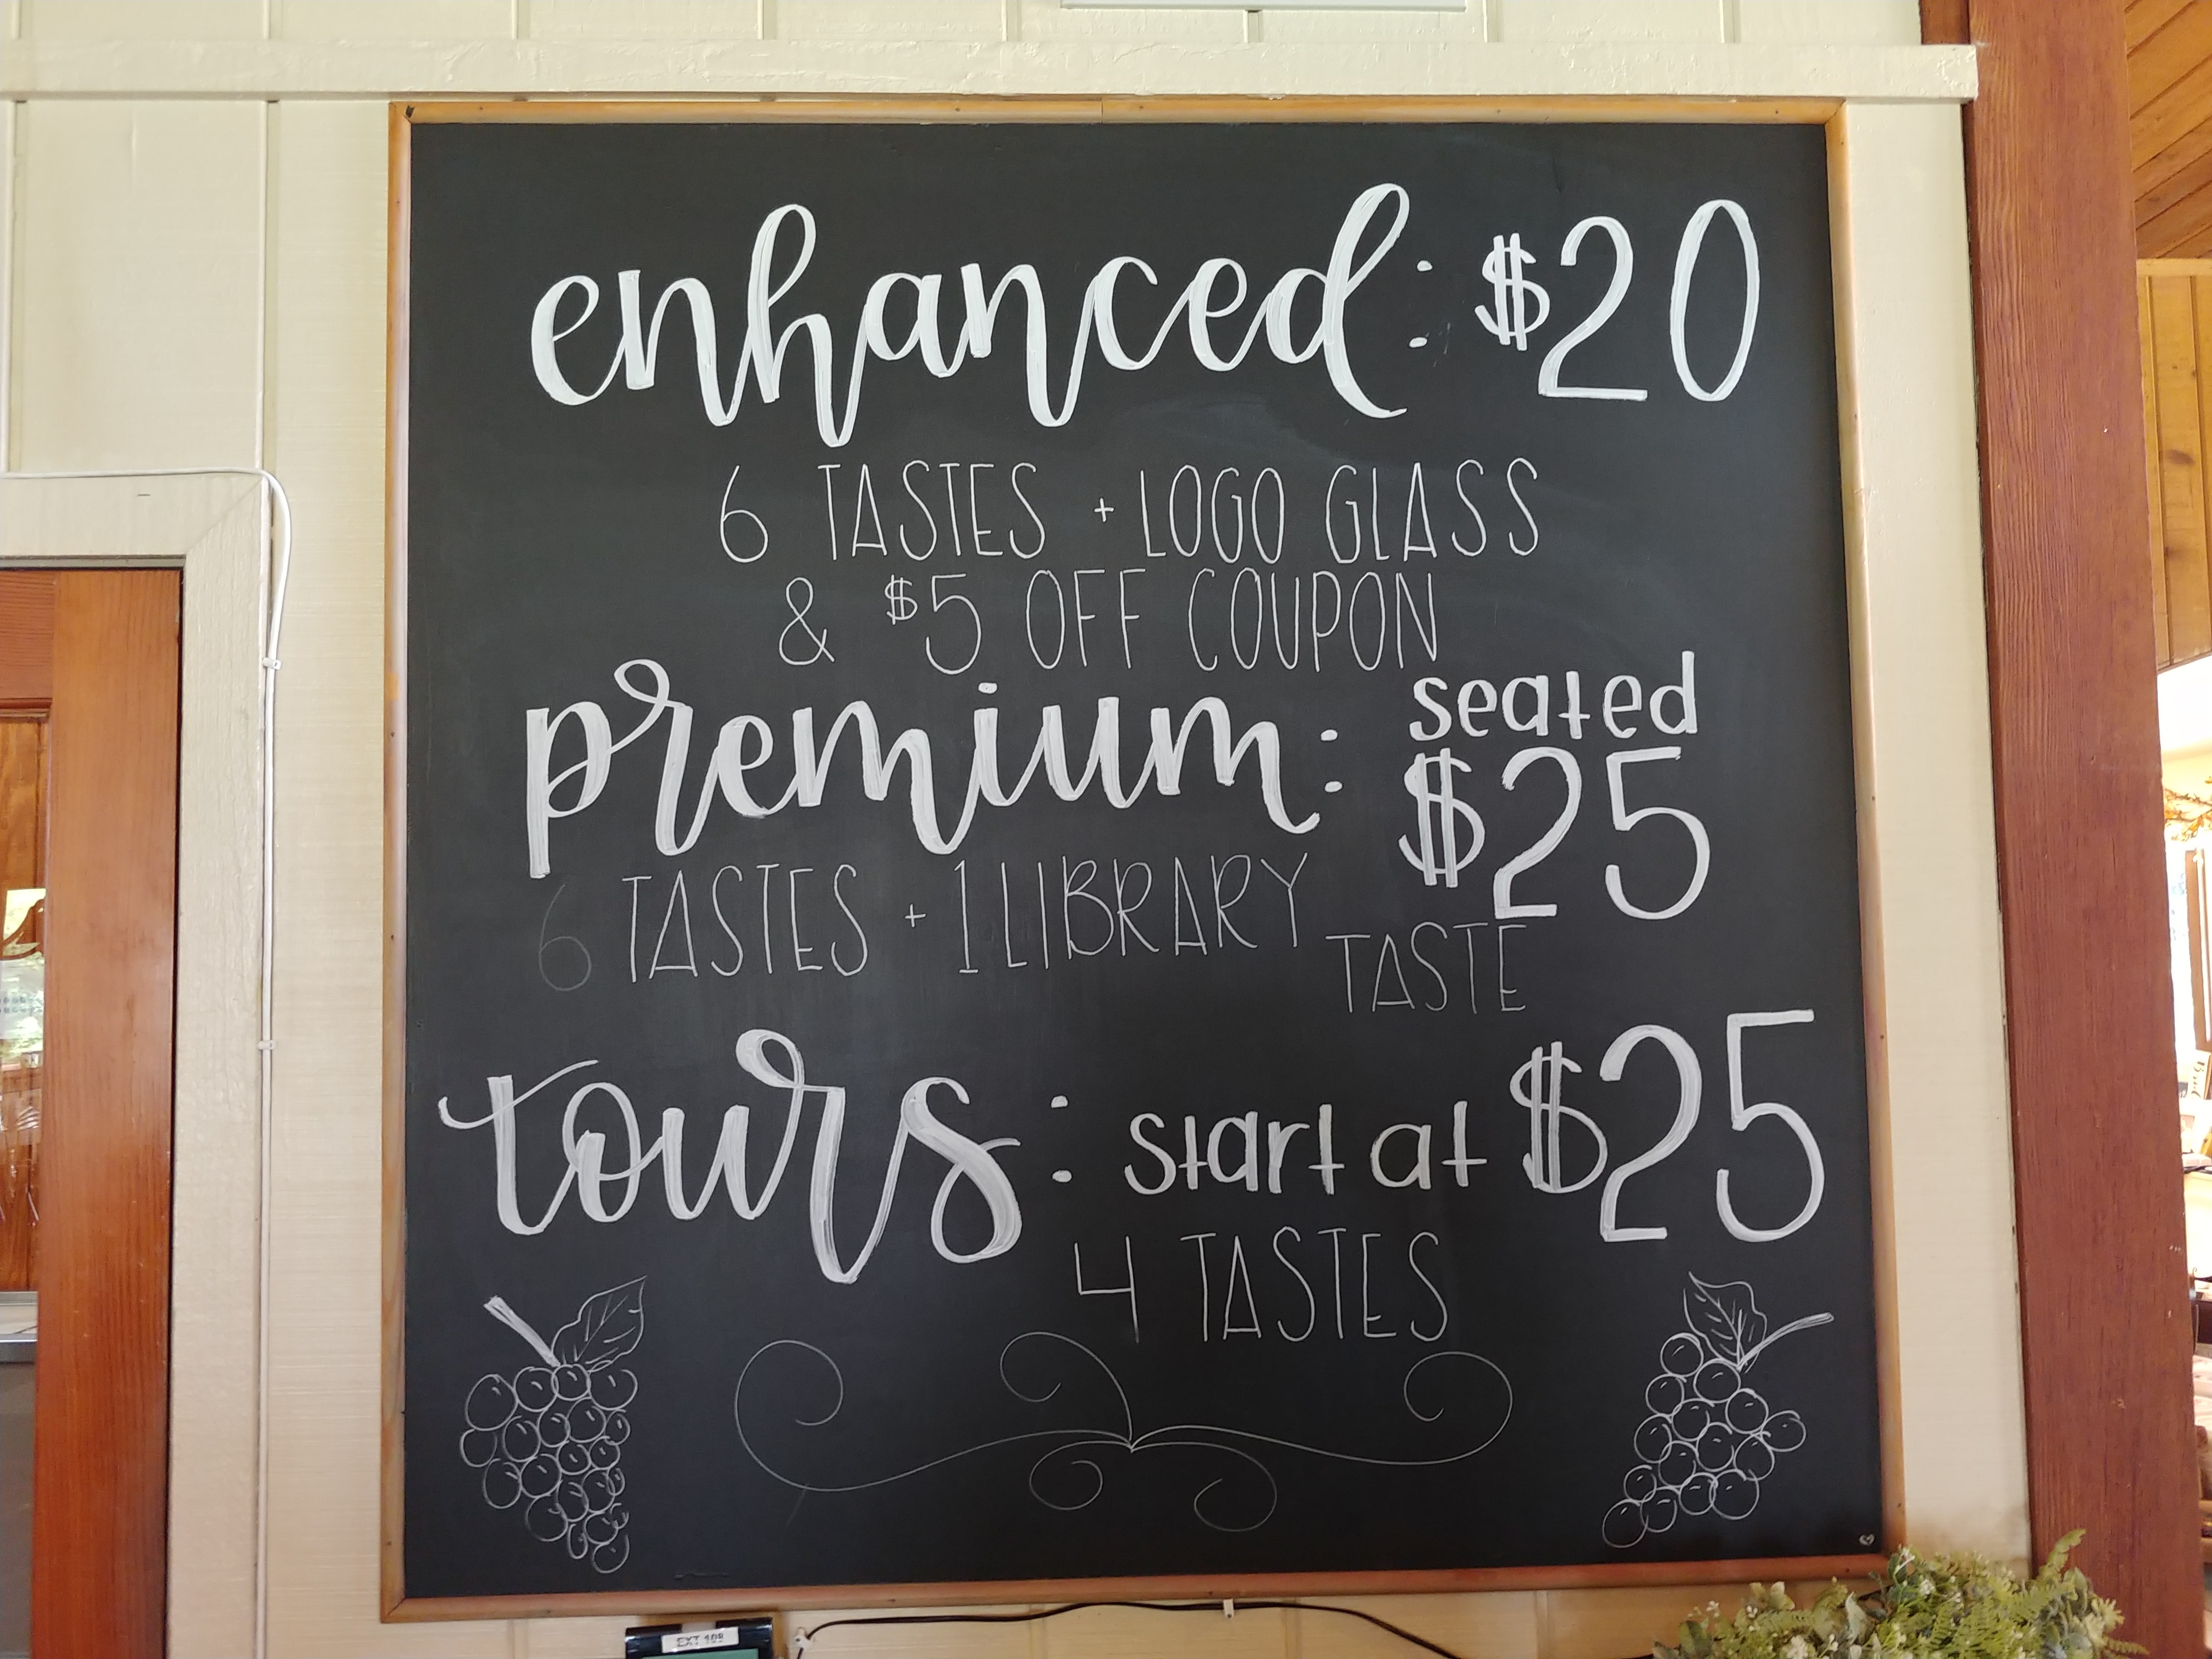 enhanced: $20
6 TASTES + LOGO GLASS
& $5 OFF COUPON
premium: seated $25
6 TASTES + 1 LIBRARY TASTE
tours: start at $25
4 TASTES
EXT 108